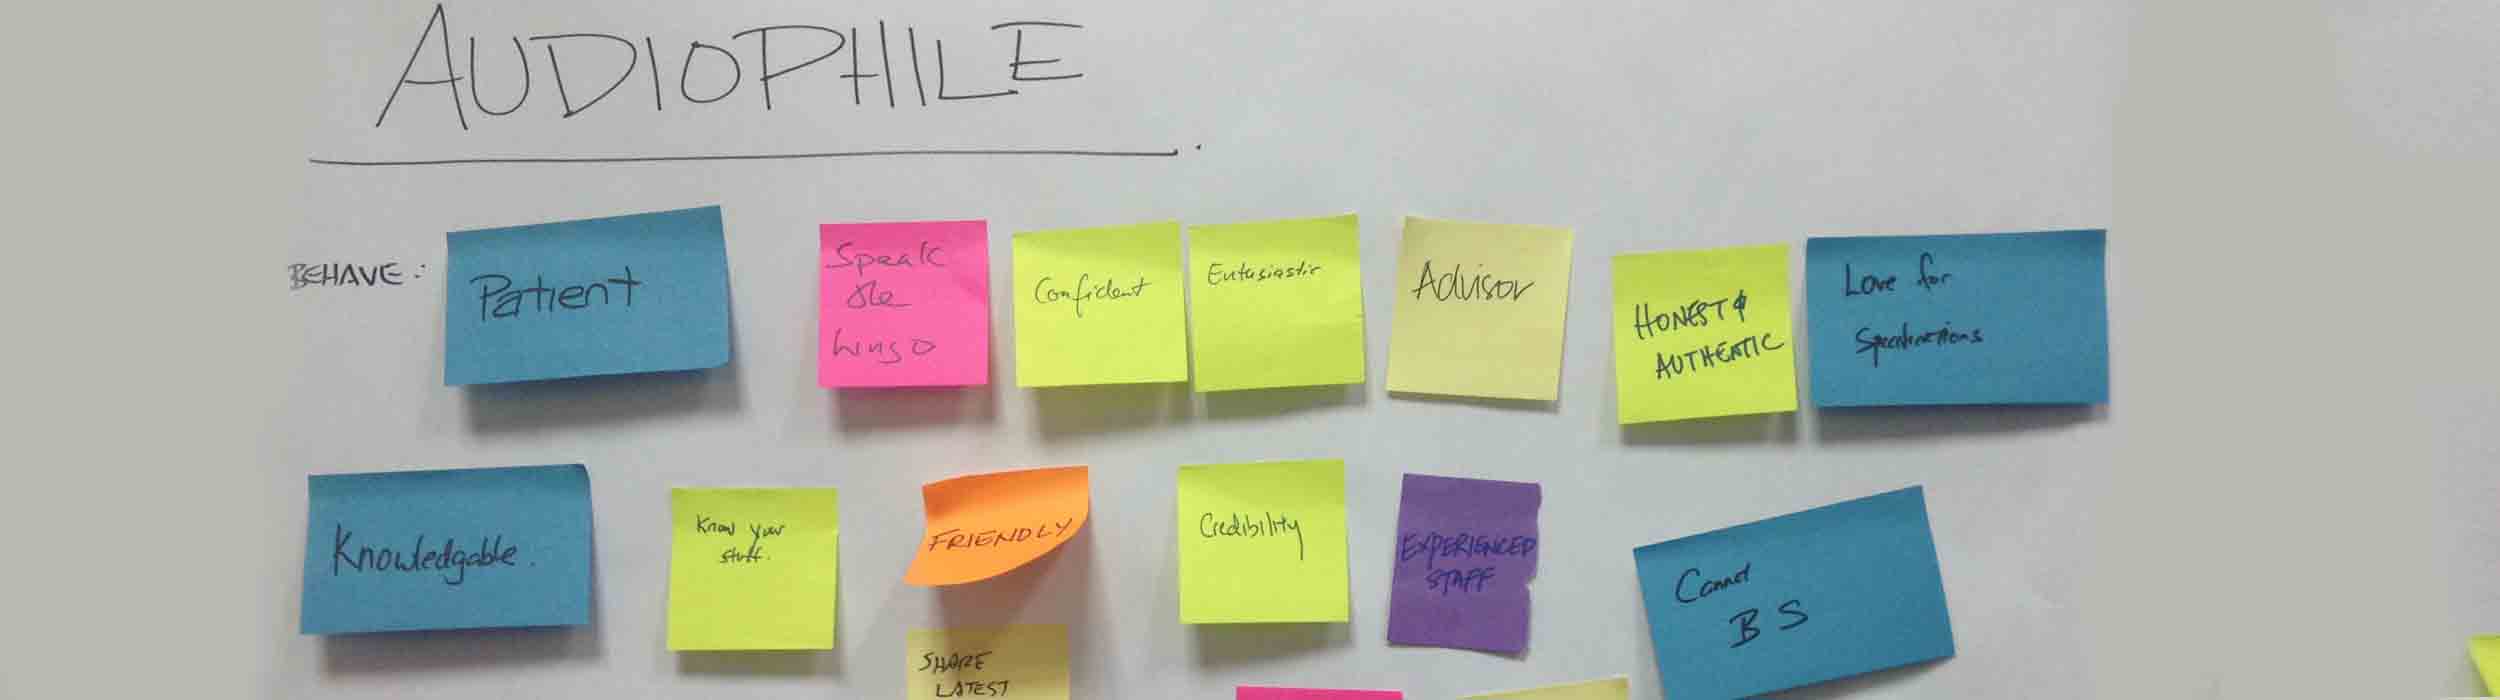 AUDIOPHILE
BEHAVE:
Patient
Speak
the
Lingo
Confident
Entusiastic
Advisor
HONEST &
AUTHENTIC
Love for
Knowledgable.
Know your
stuff.
FRIENDLY
Credibility
EXPERIENCED
STAFF
Cannot
BS
SHARE
LATEST